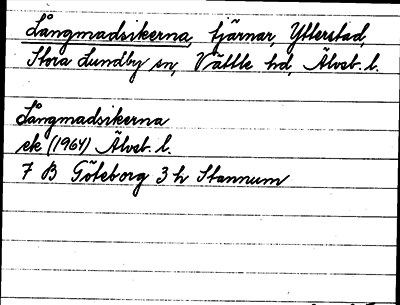 Långmadsikerna, tjärnar, Ytterstad,
Stora Lundby sn, Vättle hd, Älvsb. l.
Långmadsikerna
ek (1964) Älvsb. l.
7 B Göteborg 3 h Stannum